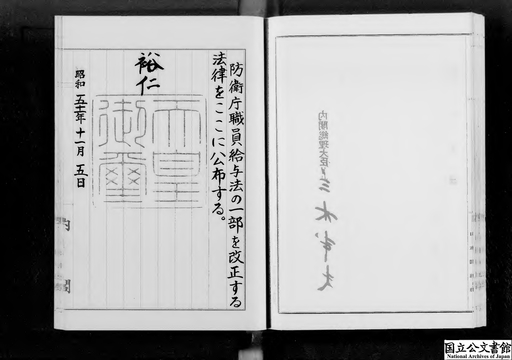 内閣総理大臣 三木武夫
防衛庁職員給与法の一部を改正する
法律をここに公布する。
裕仁
天皇
御璽
昭和五十一年十一月五日
内閣
国立公文書館
National Archives of Japan